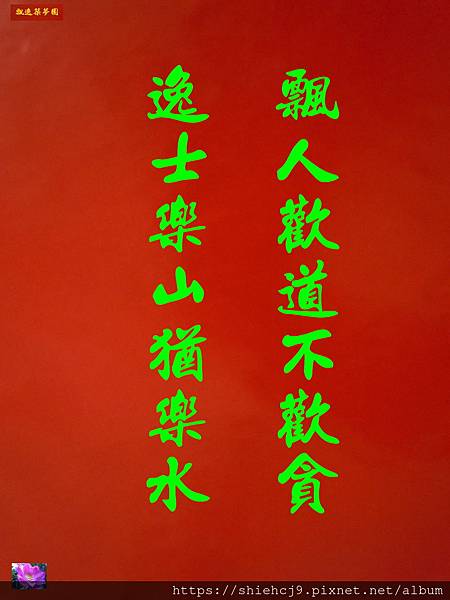 飄逸築夢園
飄人歡道不歡貪
逸士樂山猶樂水
https://shiehcj9.pixnet.net/album